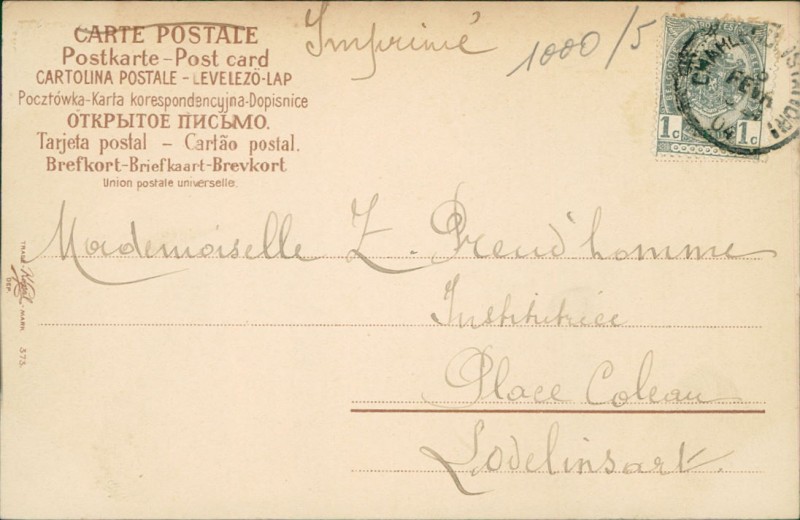 CARTE POSTALE
Postkarte - Post card
CARTOLINA POSTALE - LEVELEZŐ-LAP
Pocztówka-Karta korespondencyjna-Dopisnice
ОТКРЫТОЕ ПИСЬМО.
Tarjeta postal - Cartão postal.
Brefkort-Briefkaart-Brevkort
Union postale universelle.
Imprimé
1000/5
1c 1c
FEVR
04
Mademoiselle Z. Preud'homme
Institutrice
Place Coleau
Lodelinsart.
TRADE
DEP.
MARK.
573.